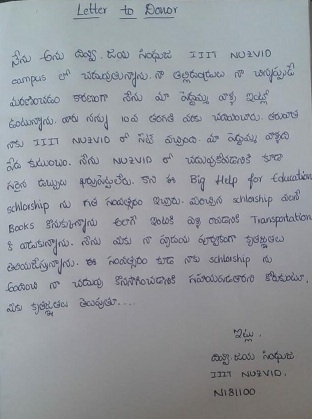 Letter to Donor
నేను అను దివ్య. జయ సింధుజ IIIT NUZVID
campus లో చదువుతున్నాను. నా తల్లిదండ్రులు నా చిన్నప్పుడే
మరణించడం కారణంగా నేను మా పెద్దమ్మ వాళ్ళ ఇంట్లో
ఉంటున్నాను. వారు నన్ను 10వ తరగతి వరకు చదివించారు. తరువాత
నాకు IIIT NUZVID లో సీట్ వచ్చింది. మా పెద్దమ్మ వాళ్లది
పేద కుటుంబం. నేను NUZVID లో చదువుకోవడానికి కూడా
సరైన డబ్బులు ఖర్చుపెట్టలేరు. కాని ఈ Big Help for Education
schlorship ను గత సంవత్సరం ఇచ్చారు. schlorship
Books కొనుక్కున్నాను అలాగే ఇంటికి వెళ్ళి రావడానికి Transportation
కి వాడుకున్నాను. నేను మీకు నా హృదయ పూర్వకంగా కృతజ్ఞతలు
తెలియజేస్తున్నాను. ఈ సంవత్సరం కూడా నాకు schlorship ను
అందించి నా చదువు కొనసాగించడానికి సహాయపడతారని కోరుకుంటూ,
మీకు కృతజ్ఞతలు తెలుపుతూ....
ఇట్లు.
దివ్య. జయ సింధుజ
IIIT NUZVID.
N181100